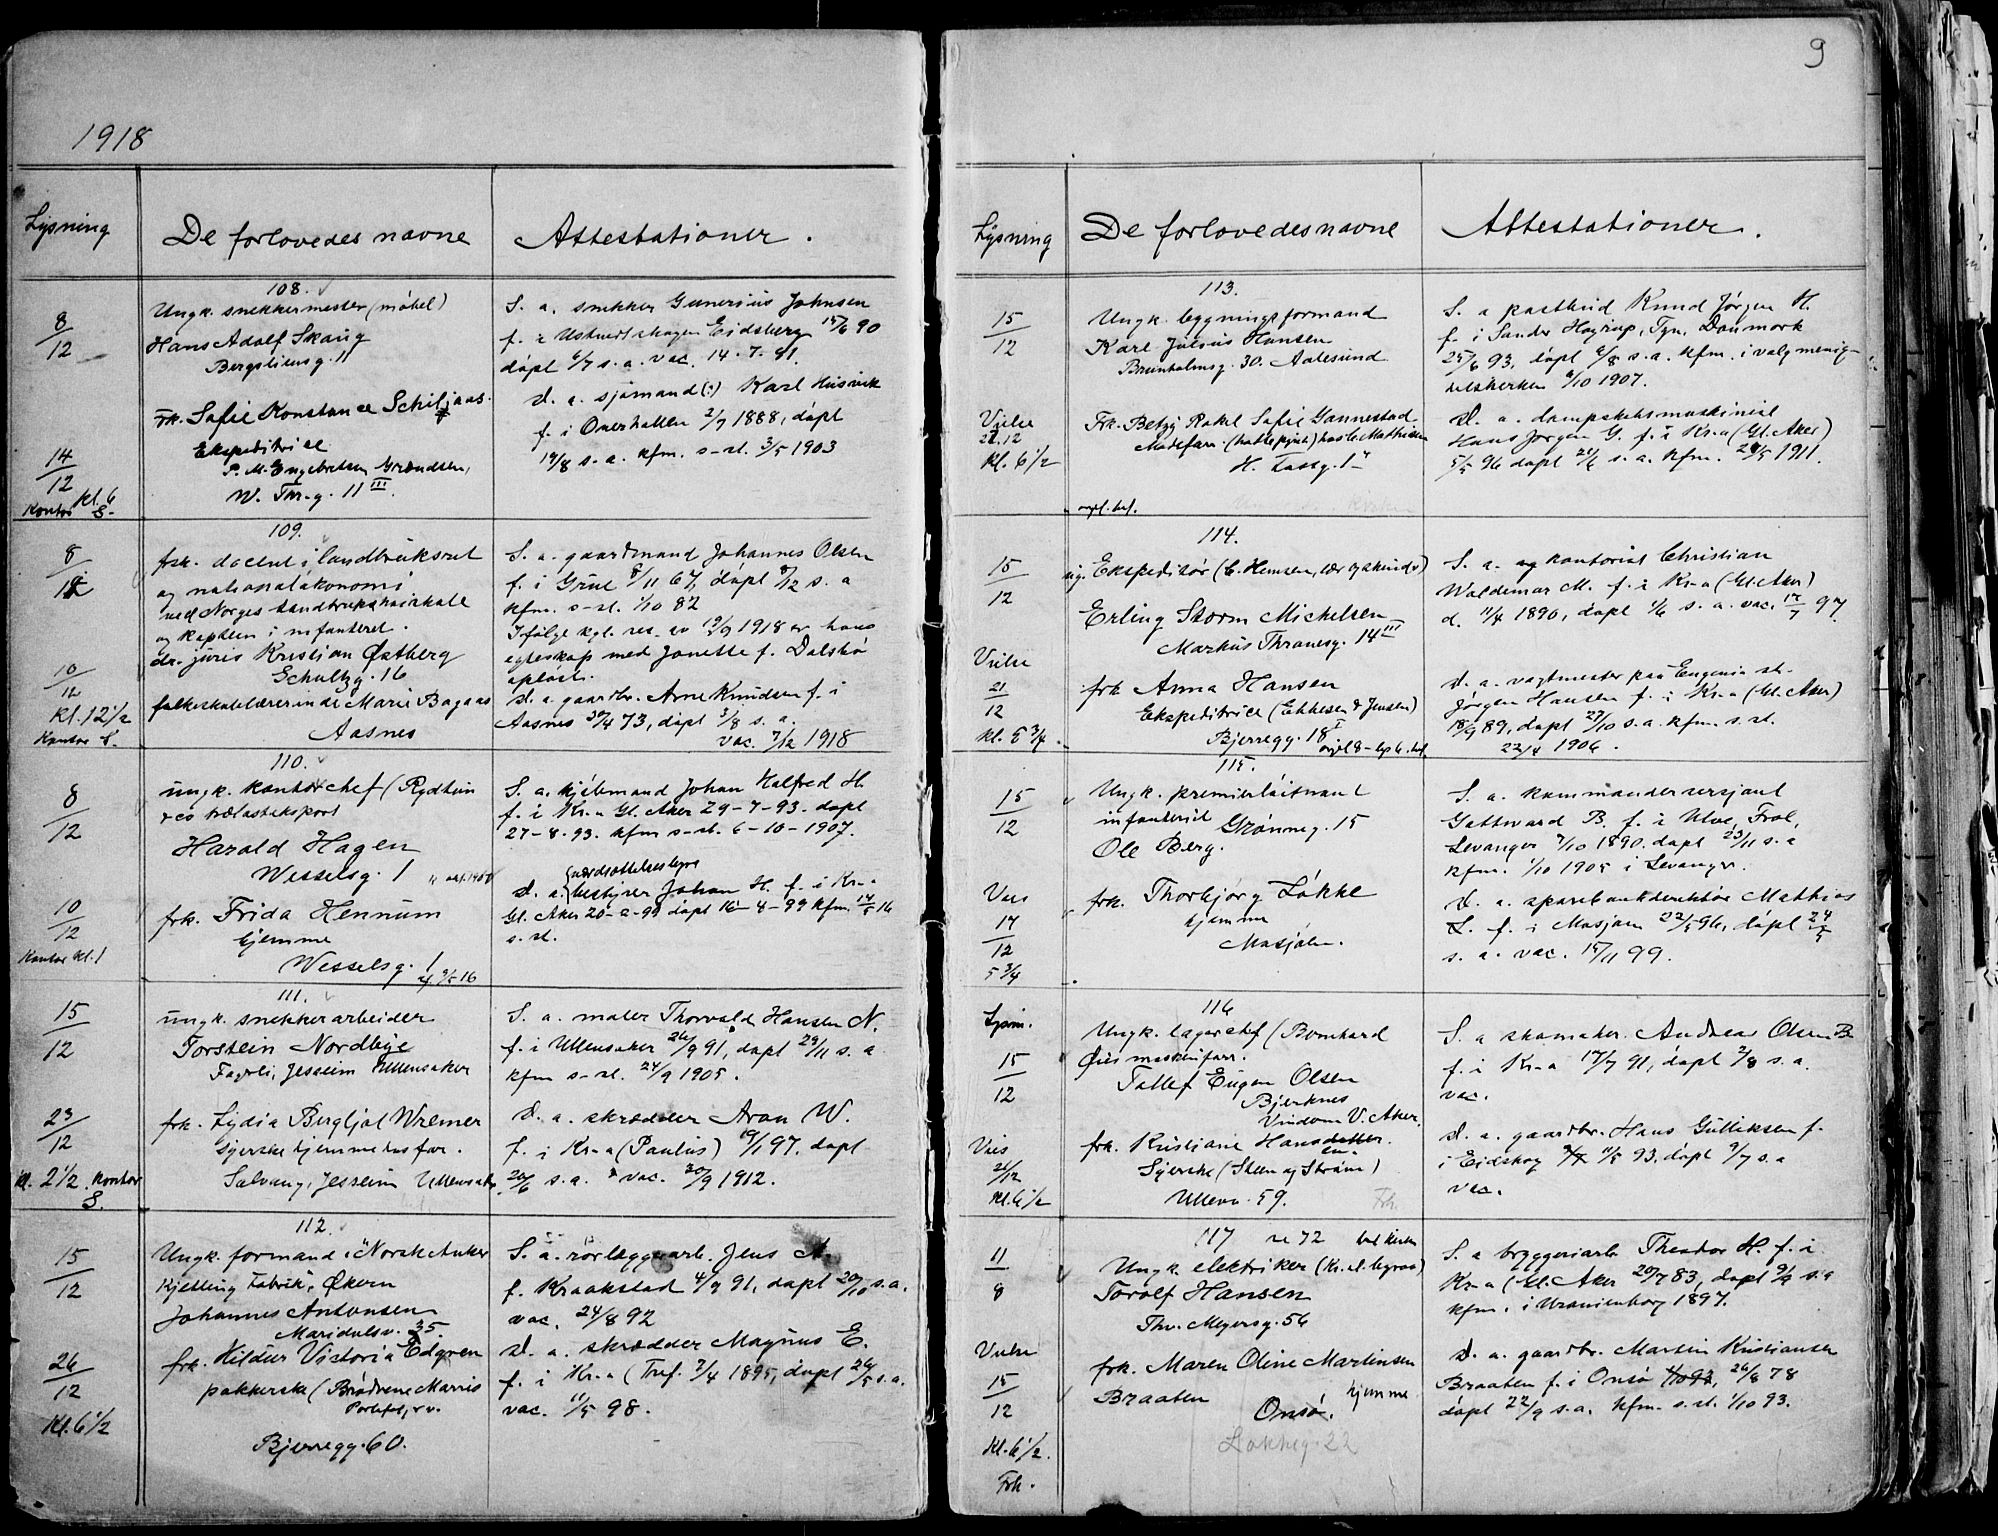 1918
Lysning
De forlovedes navne
Attestationer.
108.
8/12
Ungk. snekkermester (møbel)
Hans Adolf Skaug
Bergsliensg. 11
frk. Sofie Konstance
Ekspeditrise
P. M. Engebretsen Grændsen,
W. Thr.g. 11 III.
14/12
Kl. 6
Kontor S.
S. a. snekker Gunerius Johnsen
f. i Eidsberg 15/6 90
døpt 6/7 s. a. vac. 14.7.91.
D. a. sjømand (:) Karl Husvik
f. i Overhallen 2/7 1888, døpt
19/8 s. a. kfm. s-st. 3/5 1903
109.
8/12
frsk. docent i landbruksret
og nationaløkonomi
ved Norges Landbrukshøiskole
og kaptein i infanteriet.
dr. juris Kristian Østberg
Schultzg. 16
folkeskolelærerinde Marie Bagaas
Aasnes
10/12
Kl. 12 1/2
Kontor S.
S. a. gaardmand Johannes Olsen
f. i Grue 8/11 67, døpt 8/12 s. a
kfm. s-st. 1/10 82
Ifølge kgl. res. av 13/9 1918 er hans
egteskap med Janette f. Dalsbø
opløst.
D. a. gaardbr. Arne Knudsen f. i
Aasnes 30/4 73, døpt 3/8 s. a.
vac. 7/12 1918
110.
8/12
ungk. kontorchef (Rydtun
& co trælasteksport
Harald Hagen
Wesselsg. 1
frk. Frida Hennum
hjemme
Wesselsg. 1
10/12
Kontor kl. 1
S. a. hjelmand Johan Halfred H.
f. i Kr.a Gl. Aker 29-7-93. døpt
27-8-93. kfm s-st. 6-10-1907.
D. a. bestyrer Johan H. f. i Kr.a
s. st.
111.
15/12
ungk. snekkerarbeider
Torstein Nordbye
Fagerli, Jesseim Ullensaker
frk. Lydia Bergljot Wremer
syerske hjemme hos far.
Solvang, Jesseim Ullensaker
23/12
kl. 2 1/2. Kontor
S.
S. a. maler Thorvald Hansen N.
f. i Ullensaker 26/9 91, døpt 29/11 s. a
kfm s-st. 24/9 1905.
D. a. skrædder Aron W.
f. i Kr-a (Paulus) 19/1 97. døpt
20/6 s. a. vac. 30/9 1912.
112.
15/12
Ungk. formand i "Norsk Anker
Kjetting Fabrik", Økern
Johannes Antonsen
Maridalsv. 35.
frk. Hildur Victoria Edgren
pakkerske (Brødrene Marris
Bjerregg. 60.
26/12
Kl. 6 1/2
S. a. rørlæggerarb. Jens A.
f. Kraakstad 4/9 91, døpt 20/10 s. a.
vac. 24/8 92
D. a. skrædder Magnus E.
f. i Kr-a (Tref. 7/4 1895, døpt 26/5 s. a.
vac. 11/5 98.
9
Lysning
De forlovedes navne
Attestationer.
113.
15/12
Ungk. bygningsformand
Karl Julius Hansen
Brunholmsg. 30. Aalesund
Vielse
21.12
Kl. 6 1/2
Frk. Betzy Rakel Sofie Gannestad
H. Tostg. 1
S. a postbud Knud Jørgen H.
f. i Sønder Høyrup, Fyn, Danmark
25/6 93, døpt 6/8 s. a. kfm. i valgmenig-
hetskirken 6/10 1907.
D. a. dampskibsmaskinist
Hans Jørgen G. f. i Kr-a (Gl. Aker)
5/5 96 døpt 21/6 s. a. kfm. 28/5 1911.
114.
15/12
ug. Ekspeditør
Erling Storm Michelsen
Markus Thranesg. 14 III
Vielse
21/12
kl. 5 3/4
frk Anna Hansen
Ekspeditrice
Bjerregg. 18 I
S. a. kontorist Christian
Waldemar M. f. i Kr-a (Gl. Aker)
d. 11/4 1890, døpt 1/6 s. a. vac. 17/7 97.
D. a. vagtmester paa Eugenia st.
Jørgen Hansen f. i Kr-a (Gl. Aker)
18/9 89, døpt 27/10 s. a. kfm. s. st.
22/4 1906.
115.
15/12
Ungk. premierløitnant
infanteriet Grønneg. 15
Ole Berg.
Vies
17/12
5 3/4
frk. Thorbjørg Løkke
hjemme
Mosjøen.
S. a. kommandersersjant
Gottvard B. f. i Ulve, Frol,
Levanger 7/10 1890. døpt 23/11 s. a
kfm. 1/10 1905 i Levanger.
D. a. sparebankdirektør Mathias
L. f. i Mosjøen 22/5 96, døpt
s. a. vac. 15/11 99.
116
Lysn.
15/12
Ungk. lagerchef (Bernhard
Øies maskinforr.
Tallef Eugen Olsen
Bjerknes
Vindern V. Aker.
Vies
26/12
Kl. 6 1/2
frk. Kristiane Hansdatter.
Syerske (Steen og Strøm)
Ullevv. 59.
Frk.
S. a skomaker Andreas Olsen B
f. i Kr-a 17/7 91, døpt 2/8 s. a.
vac.
D. a. gaardbr. Hans Gulliksen f.
i Eidskog 11/5 93, døpt 9/7 s. a
vac.
117
11/8
Ungk elektriker
Torolf Hansen
Thv. Meyersg. 56
Vielse
15/12
Kl. 6 1/2.
Frk.
frk. Maren Oline Martinsen
Braaten
hjemme
Onsø.
Løkkeg. 22
S. a bryggeriarb Theodor H. f. i
Kr-a (Gl. Aker 20/7 83, døpt 9/9 s. a
kfm. i Uranienborg 1897.
D. a. gaardbr. Martin Kristiansen
Braaten f. i Onsø 26/8 78
døpt 22/9 s. a. kfm. s. st. 1/10 93.